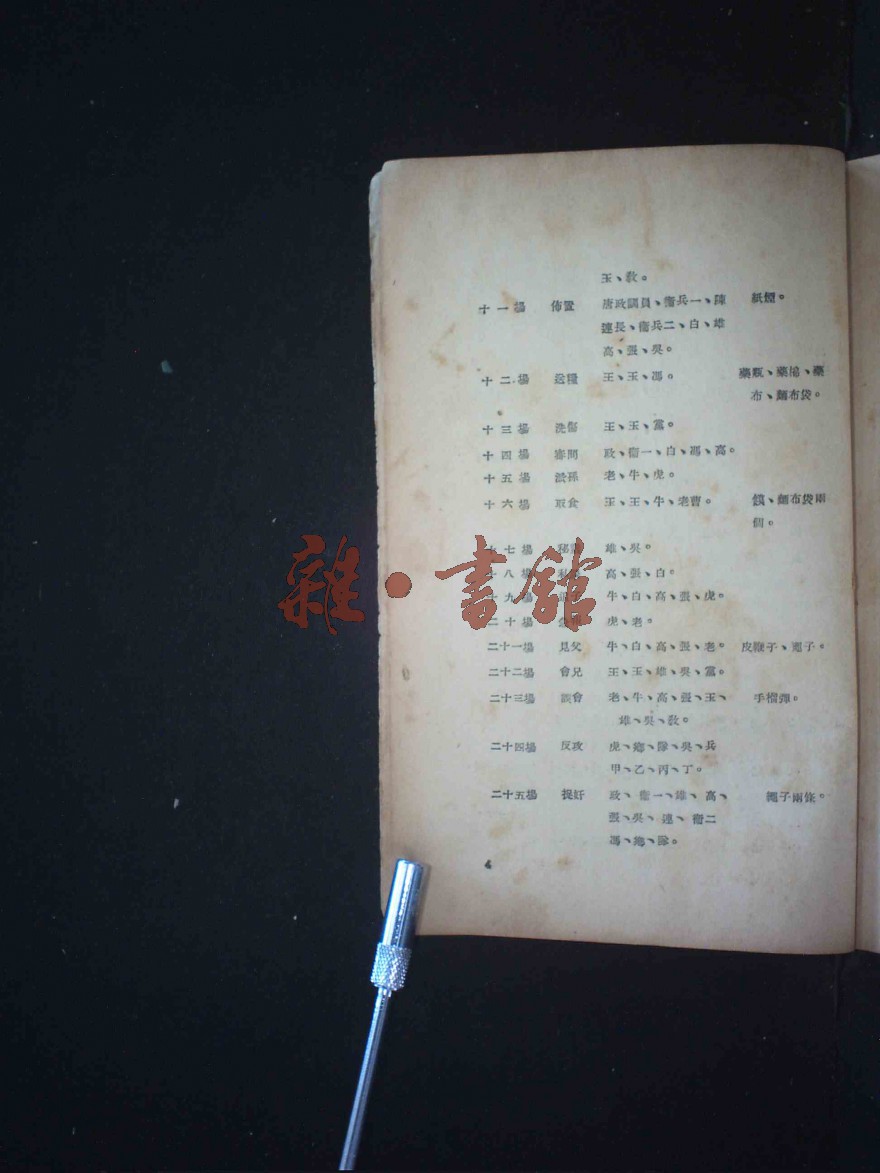 玉、敎。
十一場 佈置 唐政訓員、衞兵一、陳 紙煙。
連長、衞兵二、白、雄
高、張、吳。
十二場 送糧 王、玉、馮。 藥瓶、藥棉、藥
布、麵布袋。
十三場 洗傷 王、玉、黨。
十四場 審問 政、衞一、白、馮、高。
十五場 孫 老、牛、虎。
十六場 取食 王、玉、牛、老曹。 饃、麵布袋兩
個。
七場 秘 雄、吳。
十八場 高、張、白。
九場 牛、白、高、張、虎。
二十場 虎、老。
二十一場 見父 牛、白、高、張、老。 皮鞭子、
二十二場 會兒 王、玉、雄、吳、黨。
二十三場 誤會 老、牛、高、張、玉、 手榴彈。
雄、吳、敎。
二十四場 反攻 虎、總、隊、吳、兵
甲、乙、丙、丁。
二十五場 捉奸 政、衞一、雄、高、 繩子兩條。
張、吳、連、衞二
馮、總、隊。
4
雜·書館